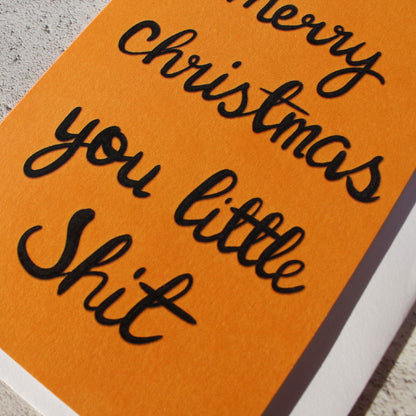 merry
christmas
you little
Shit